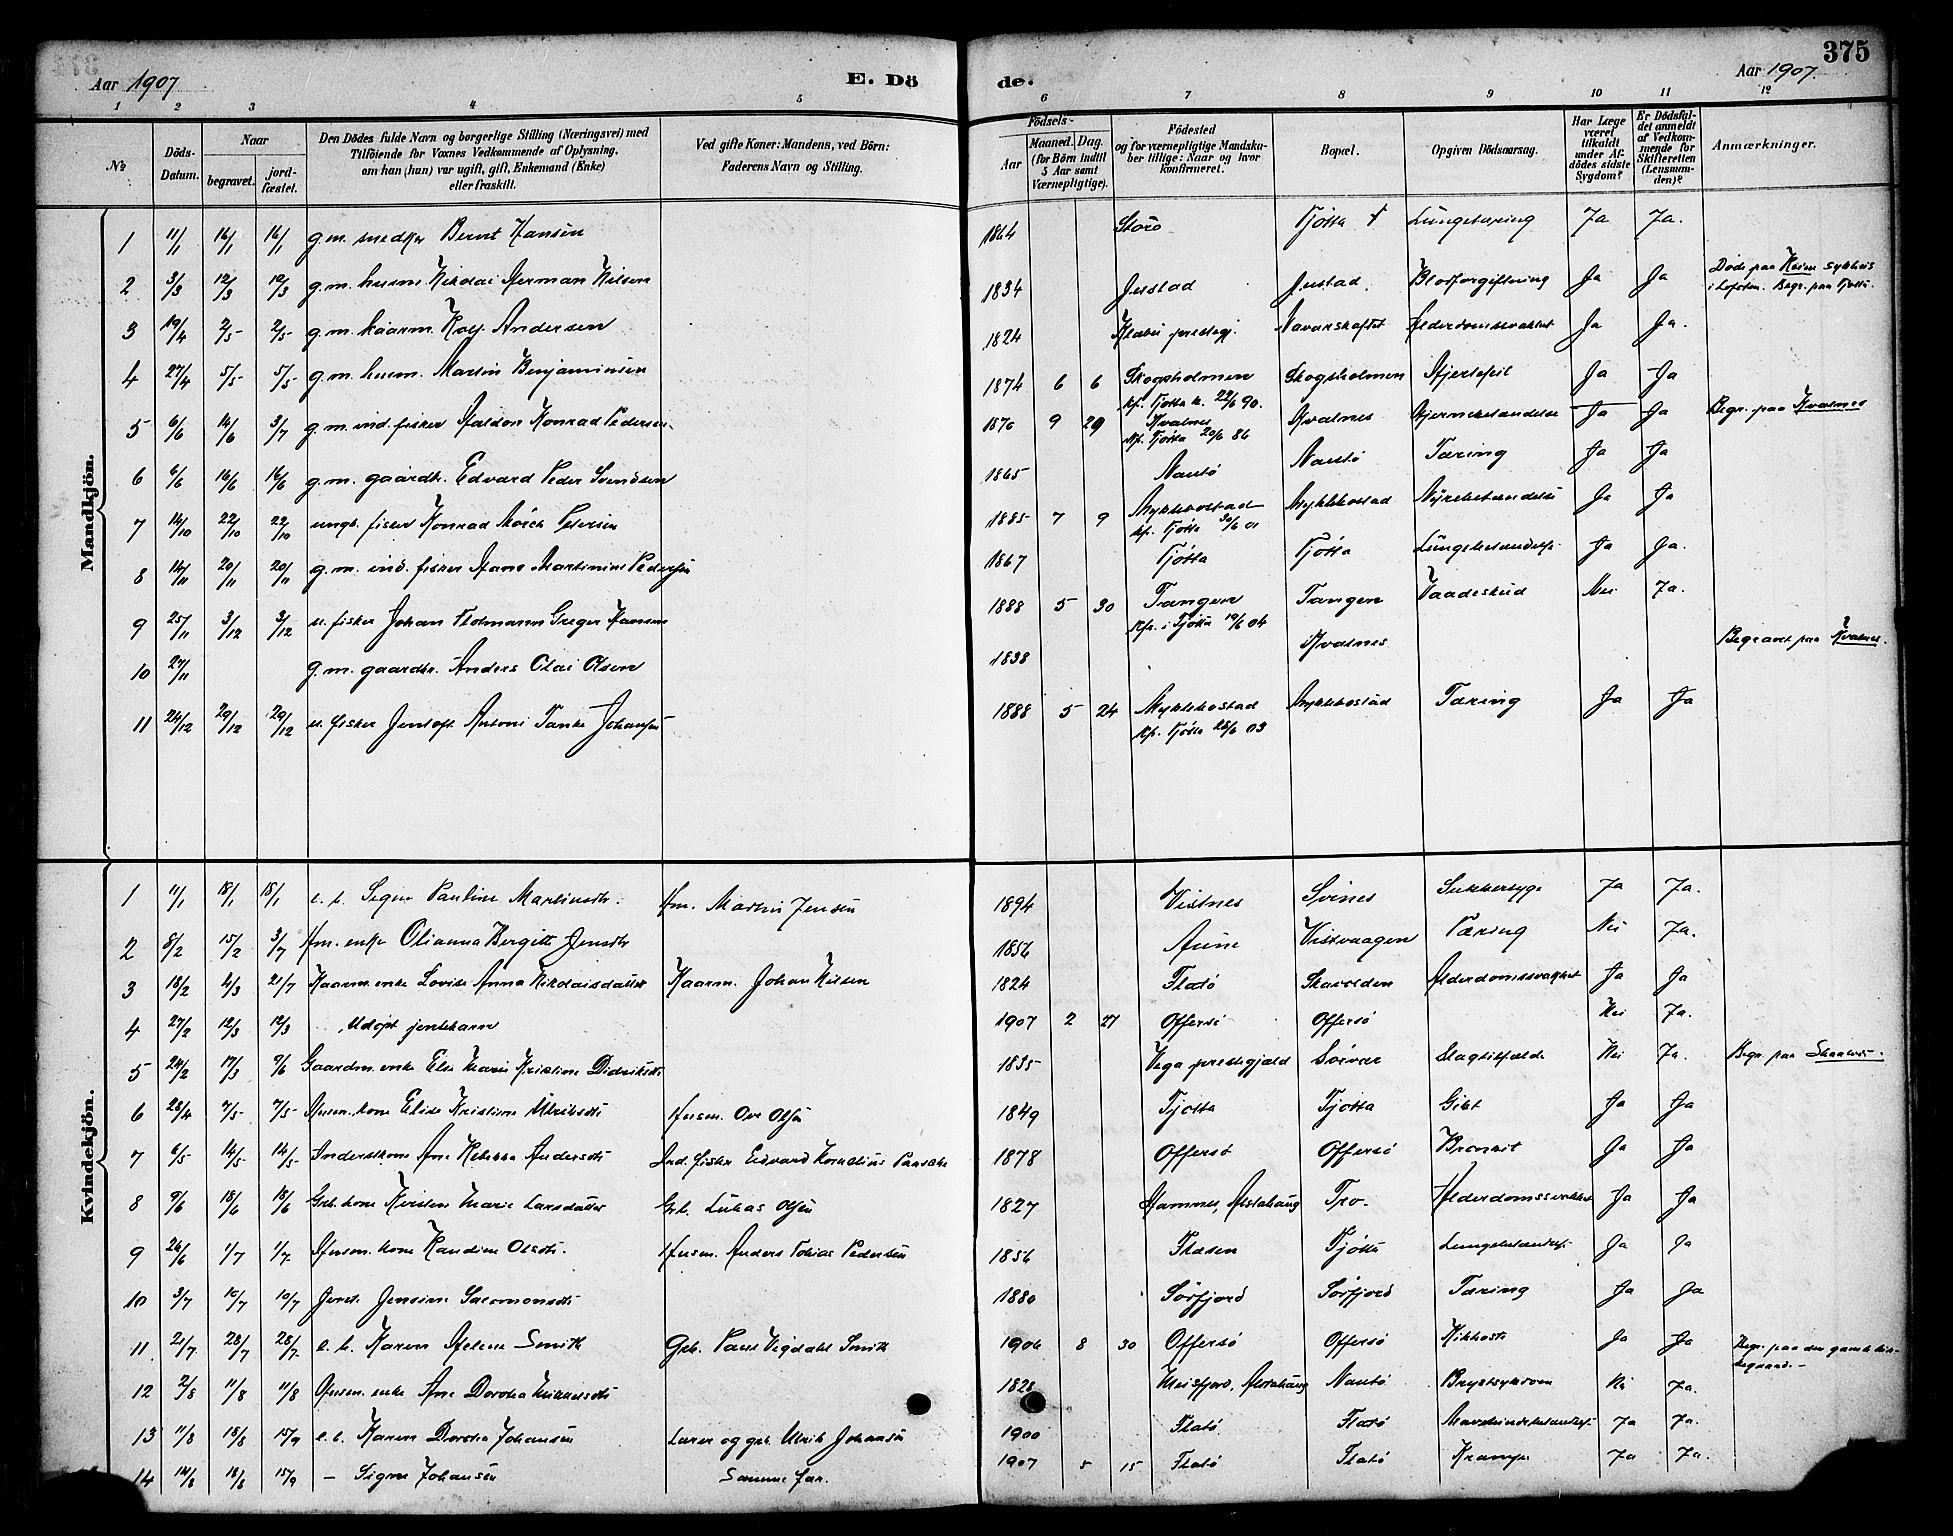 375
Aar 1907
E. Dö
de.
Aar 1907.
1 2 3 4 5 6 7 8 9 10 11 12
No
Döds-Datum.
Naar
begravet.
jord-fæstet.
Den Dödes fulde Navn og borgerlige Stilling (Næringsvei) med
Tilföiende for Voxnes Vedkommende af Oplysning,
om han (hun) var ugift, gift, Enkemand (Enke)
eller fraskilt.
Ved gifte Koner: Mandens, ved Börn:
Faderens Navn og Stilling.
Födsels-
Aar
Maaned. Dag.
(for Börn indtil
5 Aar samt
Værnepligtige).
Födested
og for værnepligtige Mandska-
ber tillige: Naar og hvor
konfirmeret.
Bopæl.
Opgiven Dödsaarsag.
Har Læge
været
tilkaldt
under Af-
dödes sidste
Sygdom?
Er Dödsfal-
det anmeldt
af Vedkom-
mende for
Skifteretten
(Lensman-
den)?
Anmærkninger.
Mandkjön.
1 11/1 16/1 16/1 g.m. snedker Bernt Hansen 1864 Storö Tjötta Lungetæring Ja Ja.
2 3/3 12/3 12/3 g.m. husm Nikolai Herman Nilsen 1834 Justad Justad. Blodforgiftning Ja Ja Döde paa sykhus
Begr. paa Tjötta
3 19/4 2/5 2/5 g.m. kaarm. Andersen 1824 Klæbu prestegj. Alderdomssvakhet Ja Ja.
4 27/4 5/5 5/5 g.m. husm. Martin Benjaminsen 1874 6 6 Skogsholmen Skogsholmen Hjertefeil Ja Ja
Kf. Tjötta k. 22/6 90.
5 6/6 14/6 3/7 g.m. ind. fisker Haldor Konrad Pedersen 1870 9 29 Kvalnes Kvalnes Hjernebetændelse Ja Ja Begr. paa Kvalnes
Kf. Tjötta 20/6 86
6 6/6 16/6 16/6 g.m. gaardbr. Edvard Peder Svendsen 1865 Nautö Nautö Tæring Ja Ja
7 14/10 22/10 22/10 ungk. fisker Konrad Mörch Petersen 1885 7 9 Myklebostad Myklebostad Nyrebetændelse Ja Ja
Kf. Tjötta 30/6 01
8 14/11 20/11 20/11 g.m. ind. fisker Hans Martinius Pedersen 1867 Tjötta Tjötta Lungebetændelse Ja Ja.
9 25/11 3/12 3/12 u. fisker Johan Tholmann Greger Hansen 1888 5 30 Tangen Tangen Vaadeskud Nei Ja.
Kfr. i Tjötta 19/6 04
10 27/11 g.m. gaardbr. Anders Olai Olsen 1838 Kvalnes Begravet paa Kvalnes.
11 24/12 29/12 29/12 u. fisker Jentoft Antoni Tanke Johansen 1888 5 24 Myklebostad Myklebostad Tæring Ja Ja
Kfr. Tjötta 28/6 03
Kvindekjön.
1 11/1 18/1 18/1 e. b. Signe Pauline Martinsdtr. Hm. Martin Jensen 1894 Vistnes Svines Sukkersyge Ja Ja.
2 8/2 15/2 3/7 Hm. enke Olianna Bergitte Jensdtr 1856 Aune Vistvaagen Tæring Nei Ja.
3 18/2 4/3 21/7 Kaarm. enke Lovise Anna Nikolaisdatter Kaarm. Johan Nilsen 1824 Flatö Skavolden Alderdomssvakhet Ja Ja
4 27/2 12/3 12/3 Udöpt pentebarn 1907 2 27 Offersö Offersö Nei Ja.
5 24/2 17/3 9/6 Gaardm. enke Else Marie Kristine Didriksdtr 1835 Vega prestegjæld Sörvær Slagtilfælde Nei Ja. Begr. paa
6 28/4 7/5 7/5 Husm. kone Elise Kristine Ulriksdtr Husm. Ove Olsen 1849 Tjötta Tjötta Gikt Ja Ja
7 6/5 14/5 14/5 Inderstkone Ane Rebekka Andersdtr Ind. fisker Edvard Kornelius Paasche 1878 Offersö Offersö Bronkit Ja Ja
8 9/6 18/6 18/6 Grb. kone Kirsten Marie Larsdatter Grb. Lukas Olsen 1827 Hamnes, Alstahaug Tro. Alderdomssvakhet Ja Ja
9 26/6 1/7 1/7 Husm. kone Randine Olsdtr. Husm. Anders Tobias Pedersen 1856 Flæsen Tjötta Lungebetændelse Ja Ja
10 3/7 10/7 10/7 Jensine Salomonsdtr 1880 Sörfjord Sörfjord Tæring Ja Ja
11 21/7 28/7 28/7 e. b. Karen Helene Smith Grb. Paul Vigdahl Smith 1906 8 30 Offersö Offersö Kikhoste Ja Ja Begr. paa den gamle kir-
kegaard. -
12 2/8 11/8 11/8 Husm. enke Ane Dorthea 1828 Meisfjord, Alstahaug Nautö Brystsykdom Nei Ja.
13 11/8 18/8 15/9 e. b. Karen Dorthea Johansen Lærer og grb. Ulrik Johansen 1900 Flatö Flatö Ja Ja.
14 14/8 18/8 15/9 - Signe Johansen Samme far. 1907 5 15 Flatö Flatö Krampe Ja Ja.